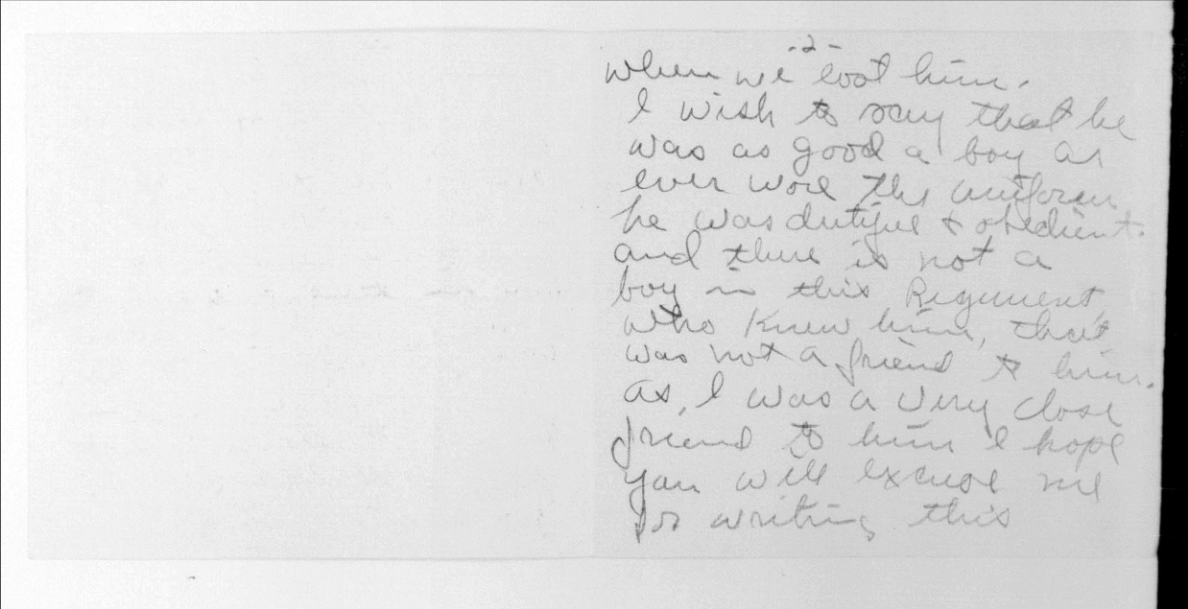 -2-
when we lost him.
I wish to say that he
was as good a boy as
ever wore the uniform
he was dutiful & obedient.
and there is not a
boy in this Regiment,
who knew him, that
was not a friend to him.
as, I was a very close
friend to him I hope
you will excuse me
for writing this